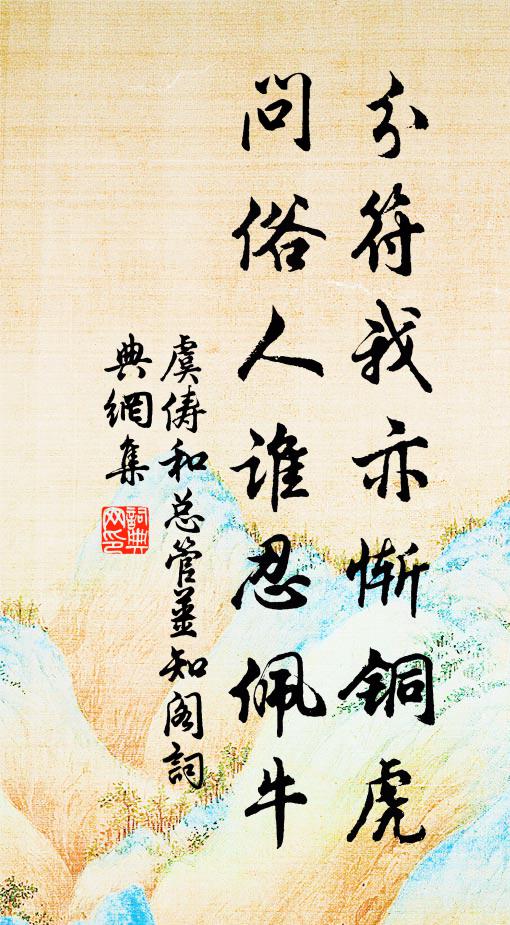 分符我亦惭铜虎
问俗人谁忍佩牛
虞俦和总管姜知阁词
典網集
詞典網印